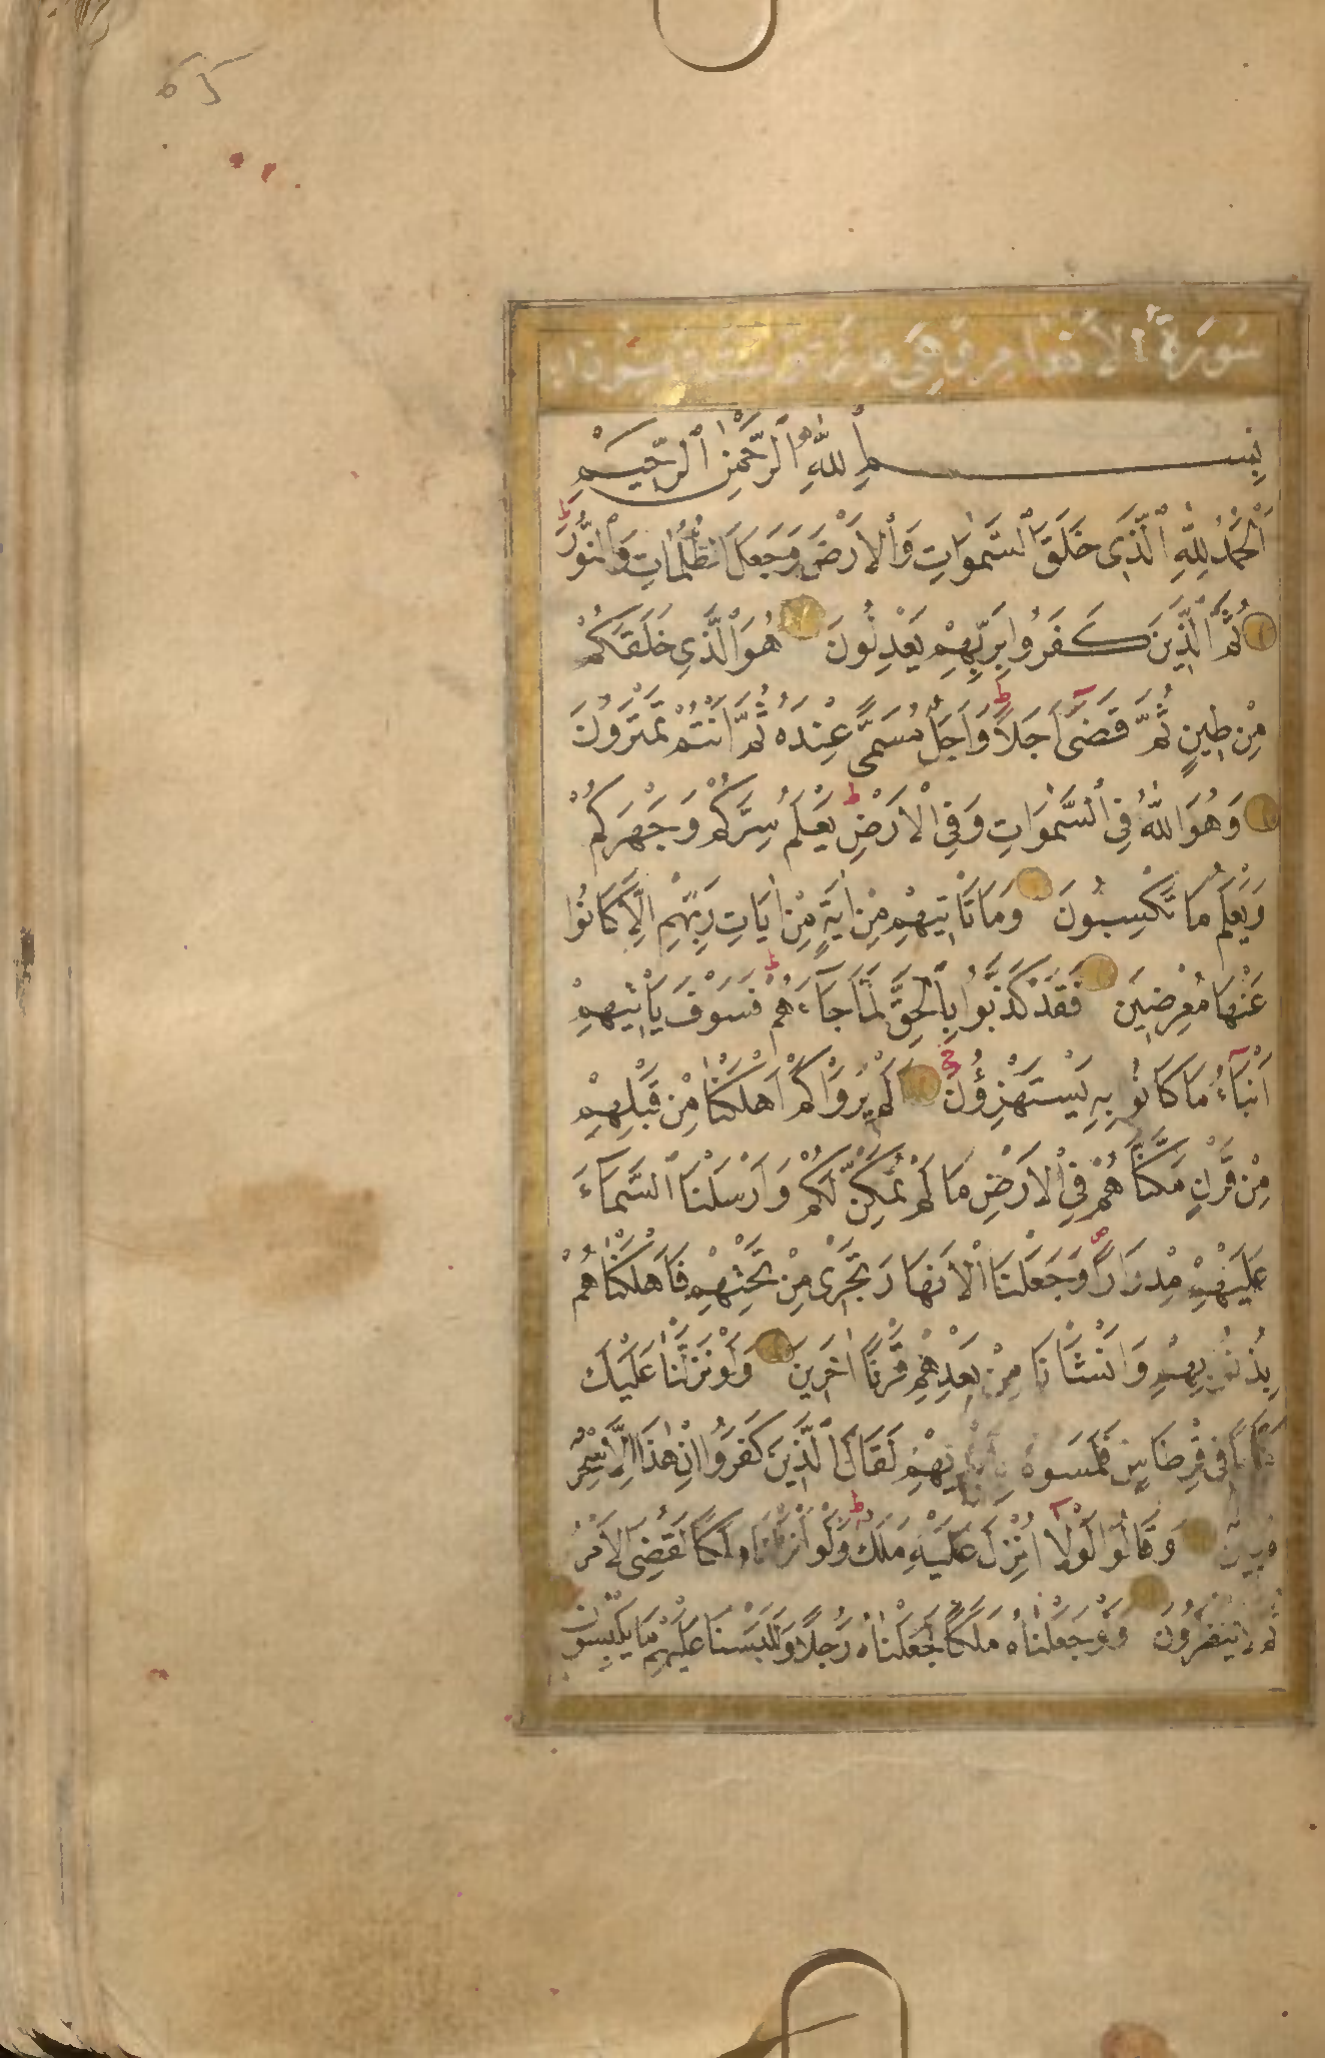 سورة الانعام
بسم الله الرحمن الرحيم
اَلْحَمْدُ لِلّٰهِ الَّذِى خَلَقَ السَّمٰوَاتِ وَالْاَرْضَ وَجَعَلَ الظُّلُمَاتِ وَالنُّورَ ط
ثُمَّ الَّذِينَ كَفَرُوا بِرَبِّهِمْ يَعْدِلُونَ هُوَ الَّذِى خَلَقَكُمْ
مِنْ طِينٍ ثُمَّ قَضَى اَجَلًا ط وَاَجَلٌ مُسَمًّى عِنْدَهُ ثُمَّ اَنْتُمْ تَمْتَرُونَ
وَهُوَ اللّٰهُ فِى السَّمٰوَاتِ وَفِى الْاَرْضِ ط يَعْلَمُ سِرَّكُمْ وَجَهْرَكُمْ
وَيَعْلَمُ مَا تَكْسِبُونَ وَمَا تَاْتِيهِمْ مِنْ اٰيَةٍ مِنْ اٰيَاتِ رَبِّهِمْ اِلَّا كَانُوا
عَنْهَا مُعْرِضِينَ فَقَدْ كَذَّبُوا بِالْحَقِّ لَمَّا جَاۤءَهُمْ ط فَسَوْفَ يَاْتِيهِمْ
اَنْبَاۤءُ مَا كَانُوا بِهِ يَسْتَهْزِؤُنَ اَلَمْ يَرَوْا كَمْ اَهْلَكْنَا مِنْ قَبْلِهِمْ
مِنْ قَرْنٍ مَكَّنَّاهُمْ فِى الْاَرْضِ مَا لَمْ نُمَكِّنْ لَكُمْ وَاَرْسَلْنَا السَّمَاۤءَ
عَلَيْهِمْ مِدْرَارًا ص وَجَعَلْنَا الْاَنْهَارَ تَجْرِى مِنْ تَحْتِهِمْ فَاَهْلَكْنَاهُمْ
بِذُنُوبِهِمْ وَاَنْشَاْنَا مِنْ بَعْدِهِمْ قَرْنًا اٰخَرِينَ وَلَوْ نَزَّلْنَا عَلَيْكَ
كِتَابًا فِى قِرْطَاسٍ فَلَمَسُوهُ بِاَيْدِيهِمْ لَقَالَ الَّذِينَ كَفَرُوا اِنْ هٰذَا اِلَّا سِحْرٌ
مُبِينٌ وَقَالُوا لَوْلَا اُنْزِلَ عَلَيْهِ مَلَكٌ ط وَلَوْ اَنْزَلْنَا مَلَكًا لَقُضِىَ الْاَمْرُ
ثُمَّ لَا يُنْظَرُونَ وَلَوْ جَعَلْنَاهُ مَلَكًا لَجَعَلْنَاهُ رَجُلًا وَلَلَبَسْنَا عَلَيْهِمْ مَا يَلْبِسُونَ